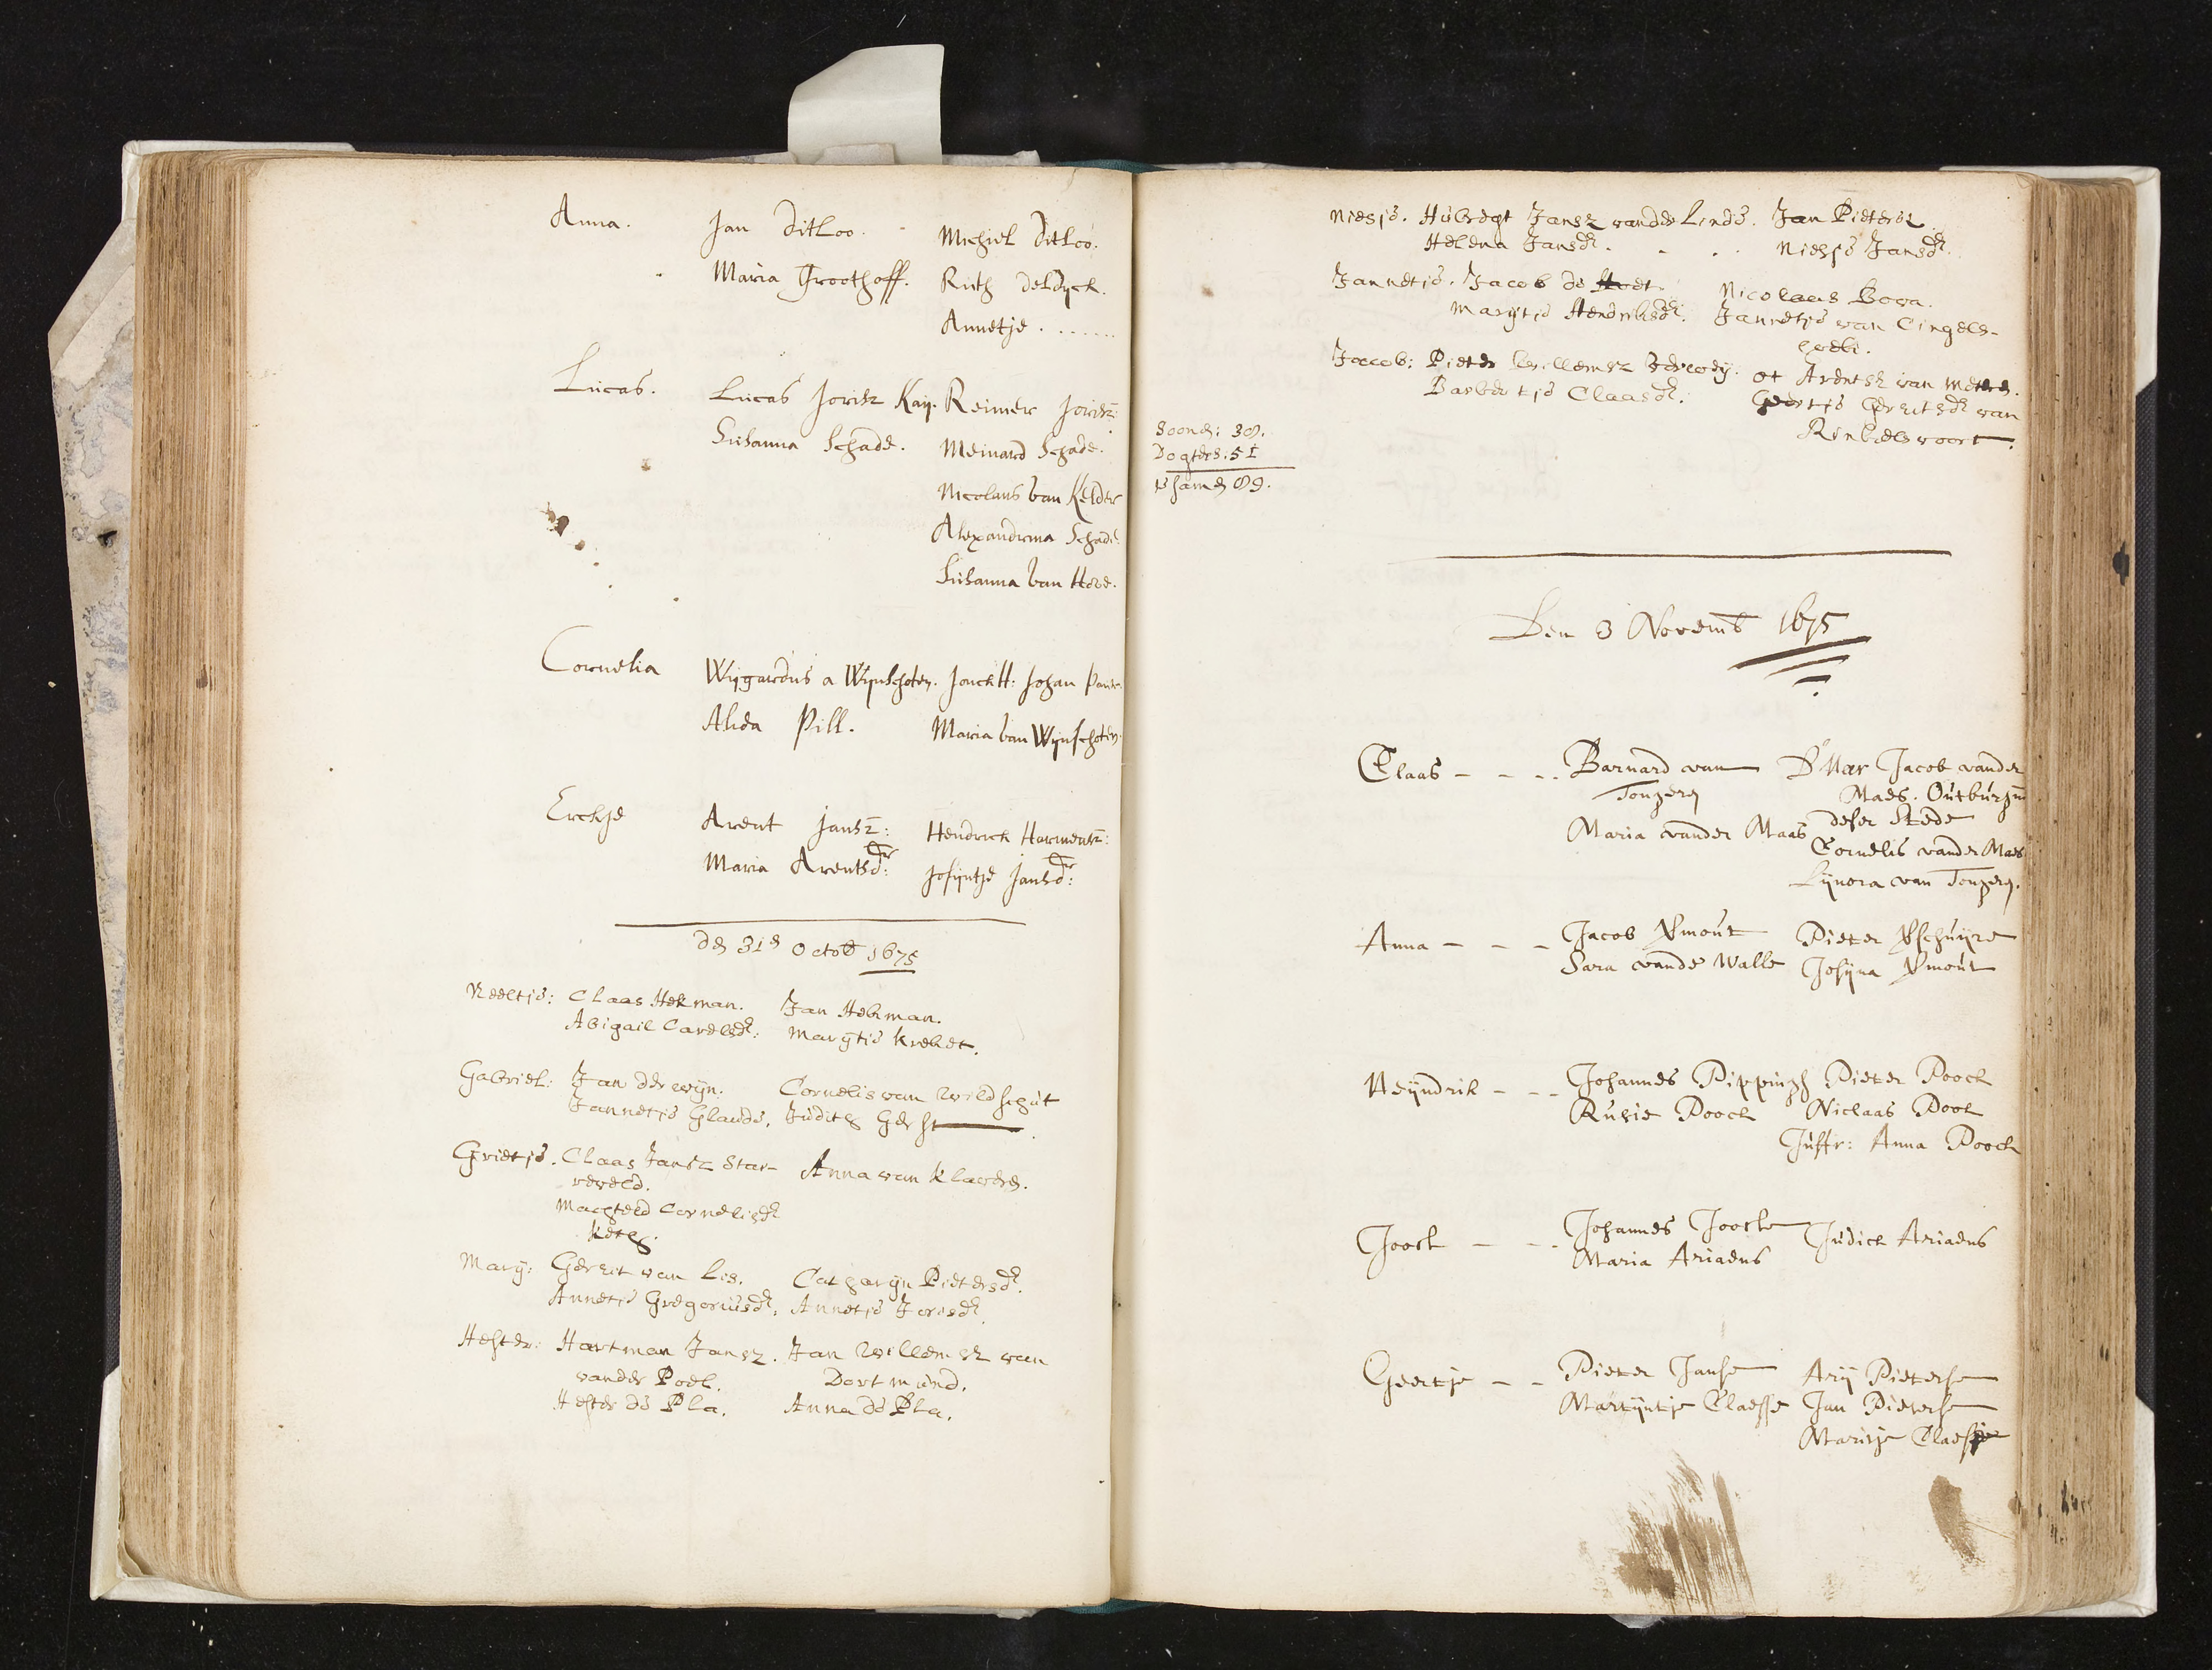 Anna. Jan Ditloo. Michiel Ditloo.
Maria Groothoff. Ruth deldyck.
Annetje . . . . . . .
Lucas. Lucas Jorisz Kay. Reimer Jorisz:
Susanna Schade. Meinard Schade.
Nicolaus van Kelder
Alexandrina Schade.
Susanna van Hove.
Cornelia Wijgardus a Wijnschoten. Jonck H: Johan
Alida Pill. Maria van Wijnschoten.
Erckje Arent Jansz: Hendrick Harmensz:
Maria Arentsdr: Josijntje Jansdr:
den 31en Octob 1675
Neeltje: Claas Hekman. Jan Hekman.
Abigail Carelsdr: Marijtje Kreket.
Gabriel: Jan der wijn. Cornelis van Wildschut
Jannetje Glaude. Judith
Grietje. Claas Jansz Star- Anna van Klaveren.
reveld.
Machteld Cornelisdr
Keteg.
Marij: Gerrit van Lis. Catharijn Pietersdr.
Annetje Gregoriusdr. Annetje Jorisdr.
Hester: Hartman Jansz. Jan Willemsz van
vander Poel. Dortmund.
Hester de Pla. Anna de Pla.
Niesje. Hubregt Jansz vander Linde. Jan Pietersz
Helena Jansdr. Niesje Jansdr.
Jannetje. Jacob de Nicolaas Bova.
Marijtje Hendriksdr. Jannetje van Cingels-
hoek.
Jacob: Pieter Willemsz Verwey. Ot Arentsz van Meteren.
Barbertje Claasdr. Geertje Gerritsdr van
Rinkelsvoort.
Soonen: 38.
Dogters: 51
tsamen 89.
Den 3 Novemb 1675
Claas - - - Barnard van D'Heer Jacob vander
Tongeren Maes. Outburgm
Maria vander Maas deser Stede
Cornelis vander Maes
Lijnora van Tongeren.
Anna - - - Jacob Vermout Pieter Verschuijre
Sara vande Walle Josijna Vermout
Heijndrik - - - Johannes Pippingh Pieter Poock
Rusie Poock Niclaas Pook
Juffr: Anna Poock
Joost - - - Johannes Jooste Judick Ariaens
Maria Ariaens
Geertje - - Pieter Janse Arij Pieterse
Martijntje Claesse Jan Pieterse
Maritje Claesse